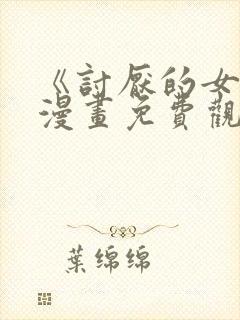 《討厭的女
漫畫免費觀
葉綿綿